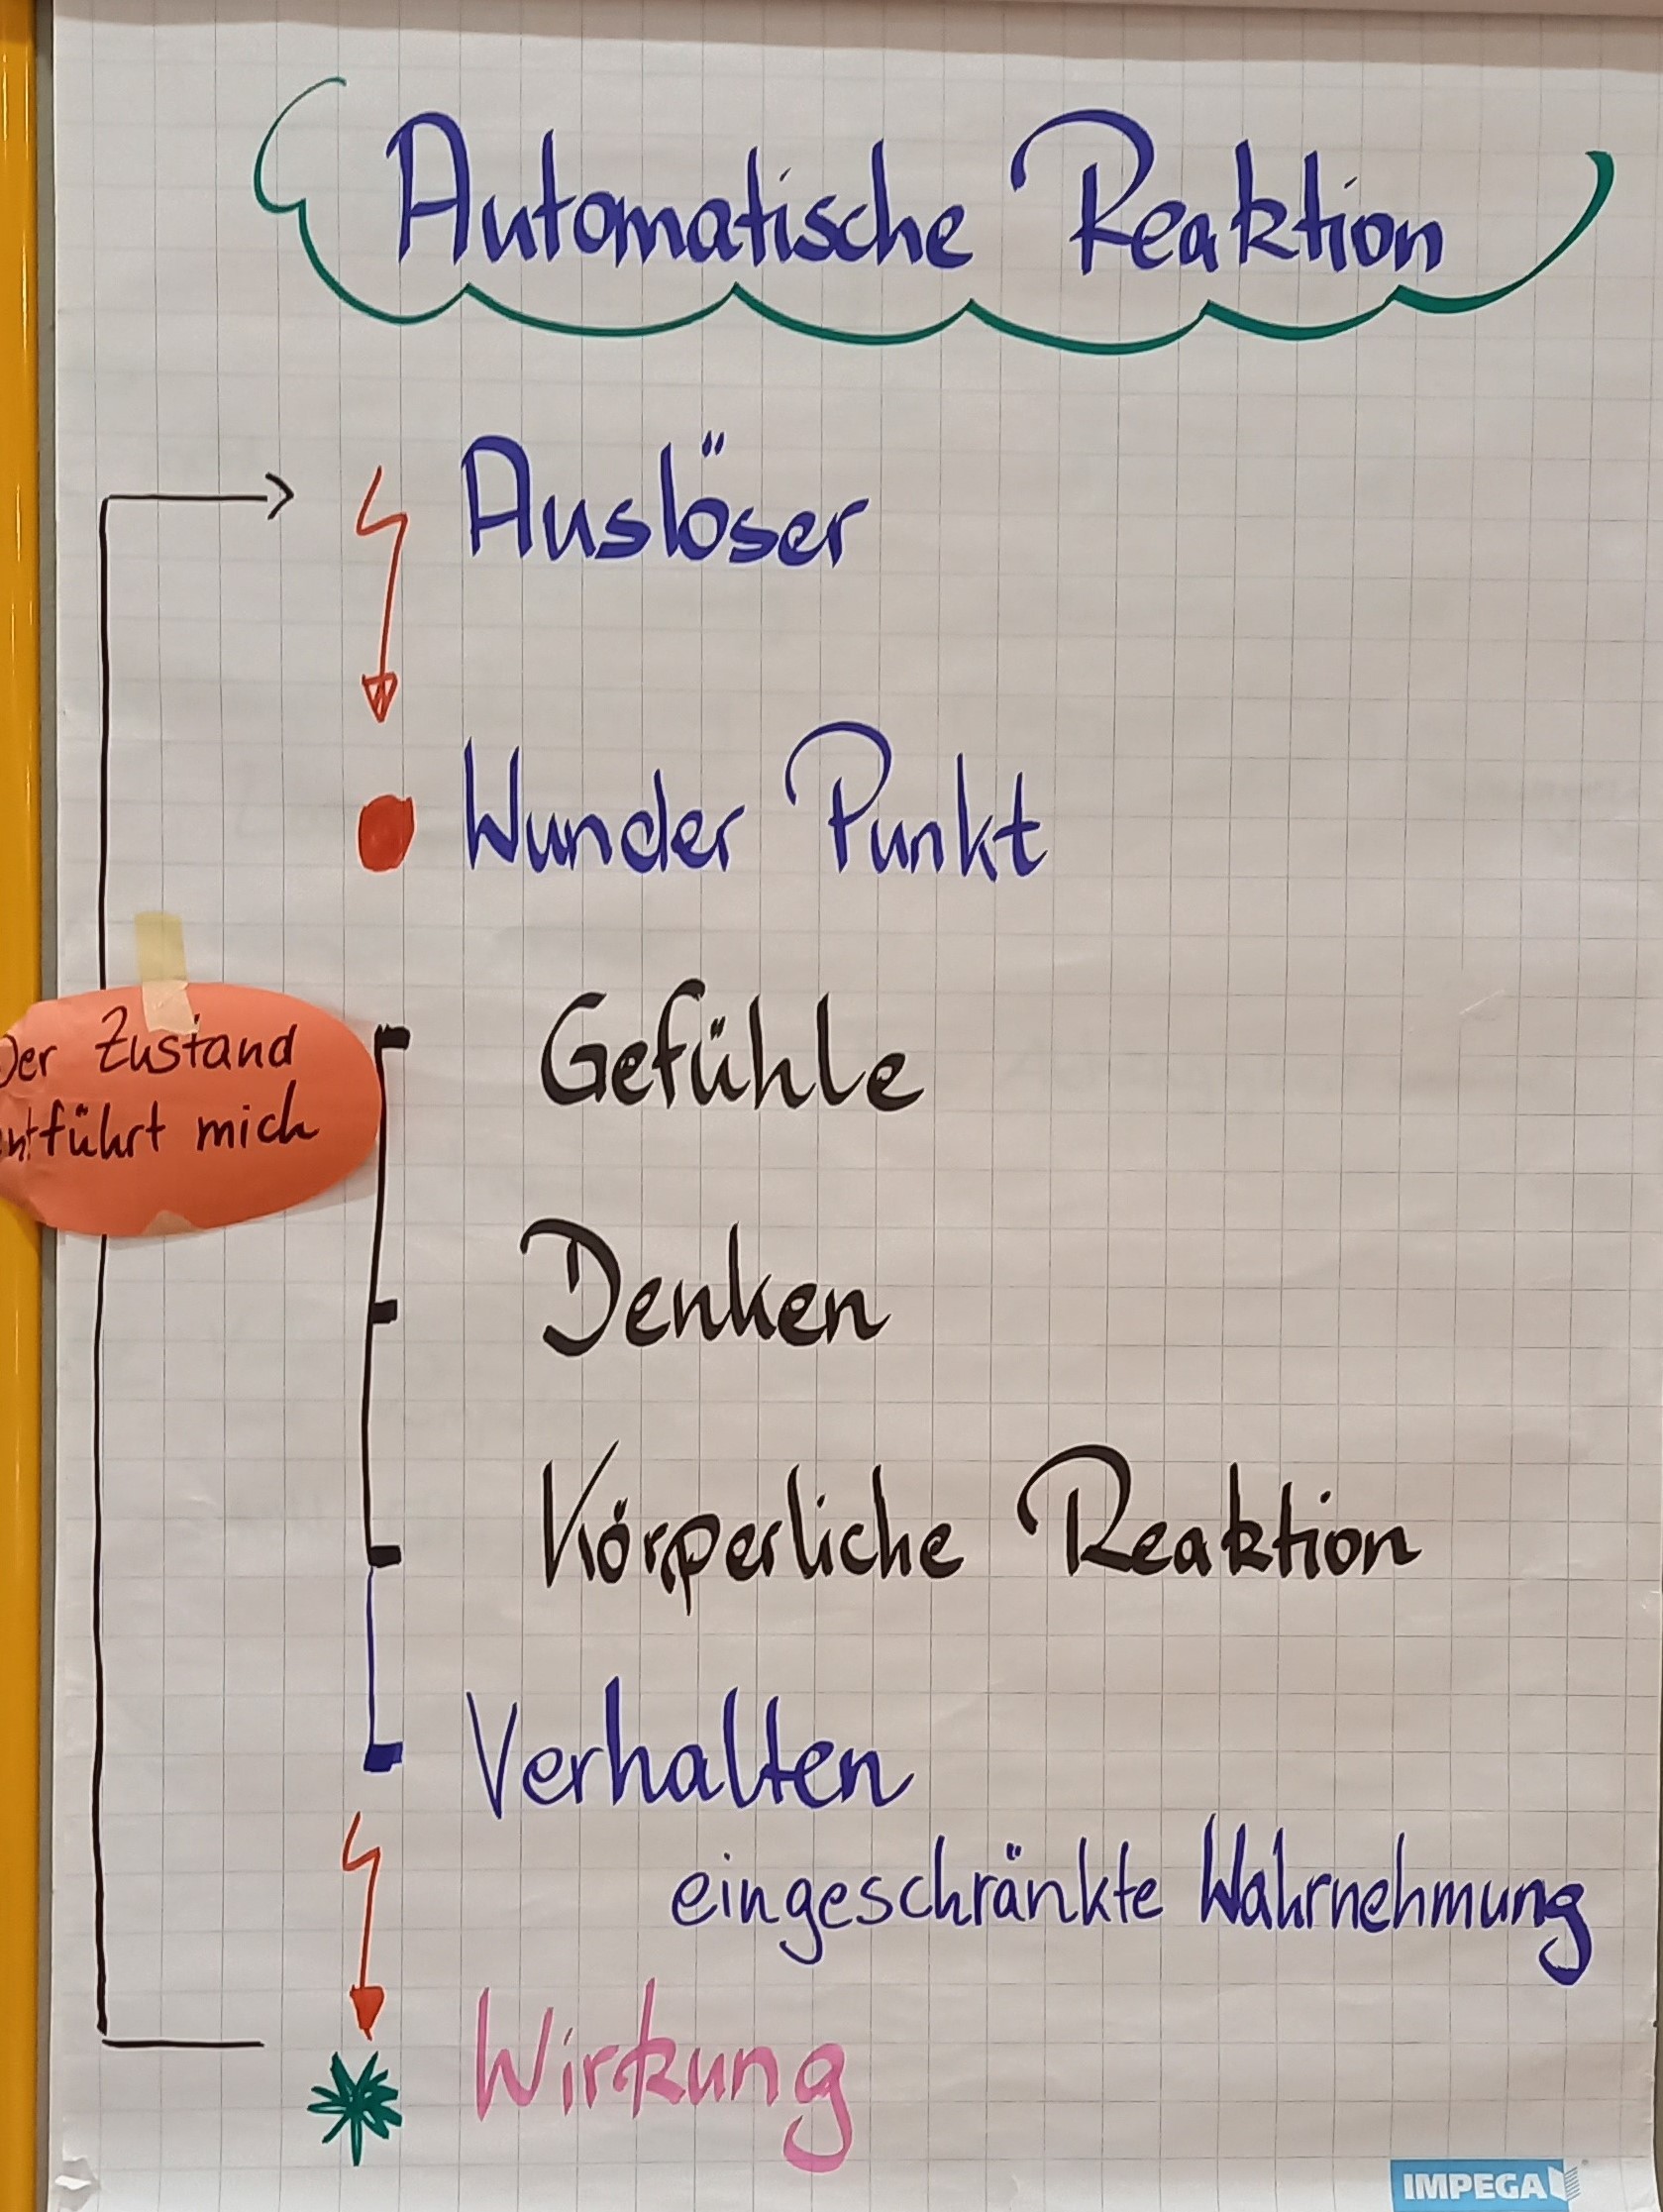 Automatische Reaktion
Auslöser
Wunder Punkt
Der Zustand
entführt mich
Gefühle
Denken
Körperliche Reaktion
Verhalten
eingeschränkte Wahrnehmung
Wirkung
IMPEGA